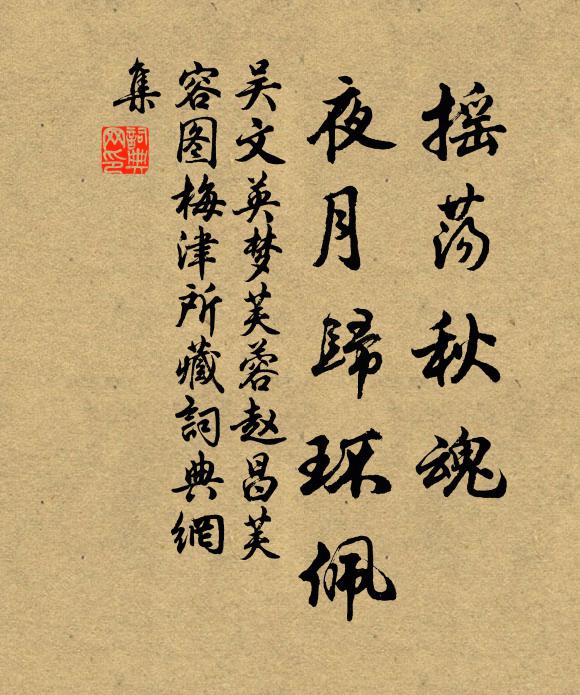 摇荡秋魂
夜月歸环佩
吴文英梦芙蓉赵昌芙
容图梅津所藏詞典網
集
詞典网印